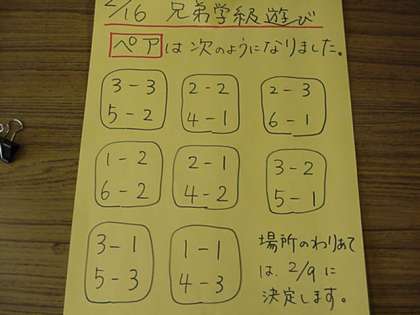 2/16 兄弟学級遊び
ペアは次のようになりました。
3-3 2-2 2-3
5-2 4-1 6-1
1-2 2-1 3-2
6-2 4-2 5-1
3-1 1-1 場所のわりあて
5-3 4-3 は、2/9に
決定します。